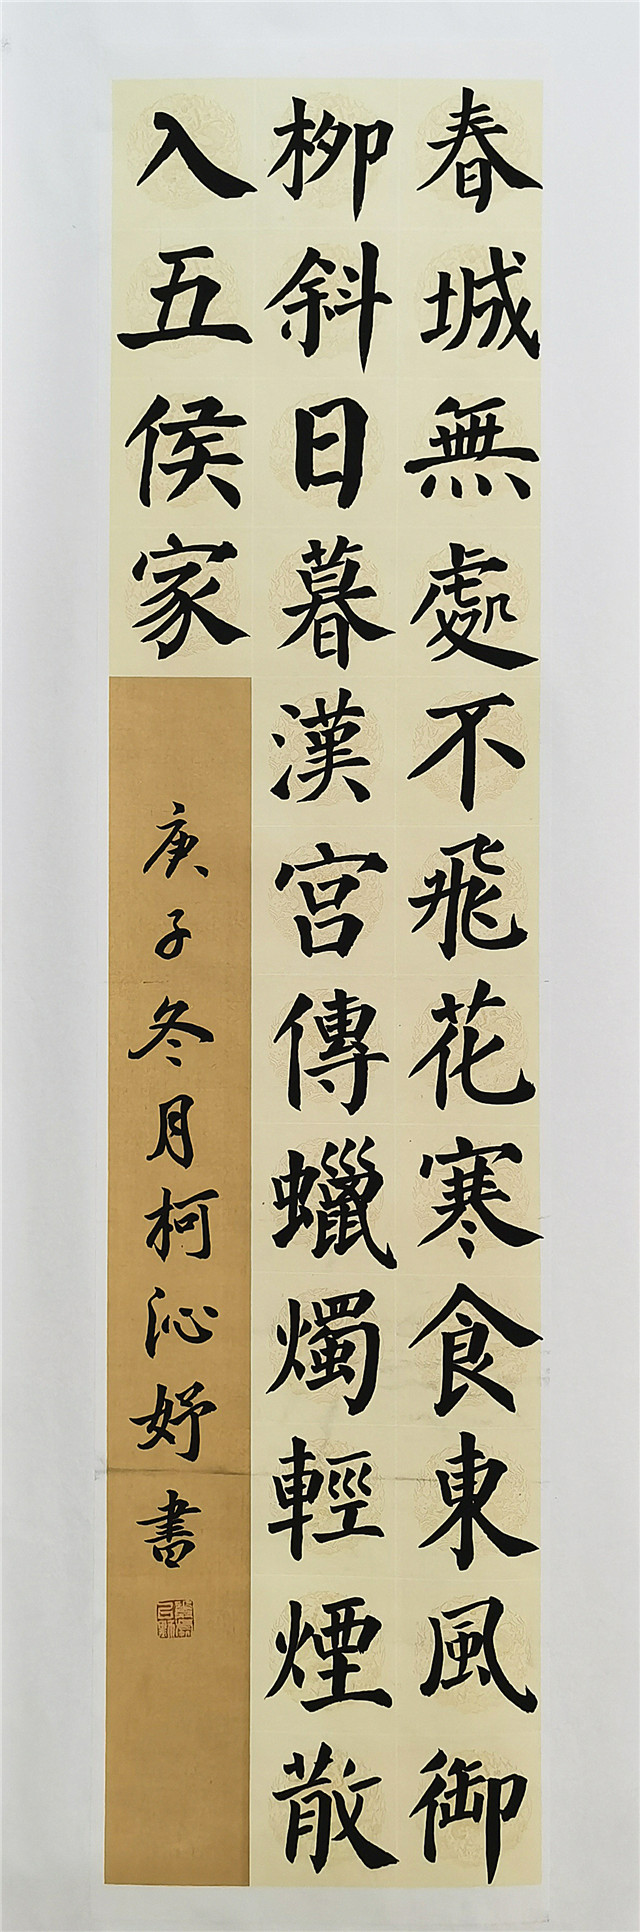 春城無處不飛花寒食東風御
柳斜日暮漢宮傳蠟燭輕煙散
入五侯家
庚子冬月柯沁妤書